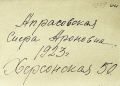 Апрасовская
Сиера Ароновна
1923г.
Херсонская 50